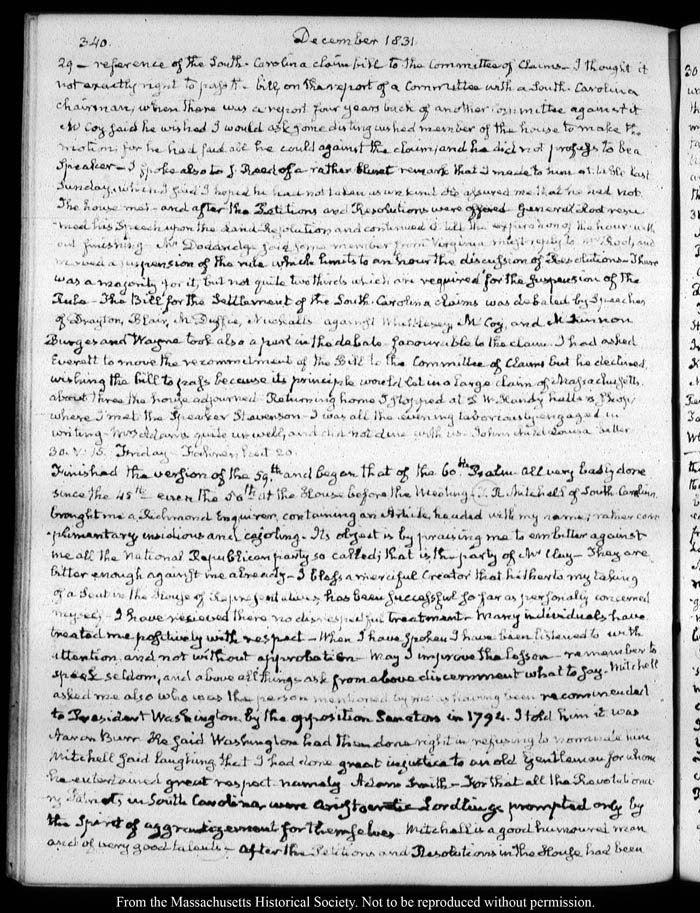 340.
December 1831.
29 — reference of the South-Carolina claim bill to the Committee of Claims — I thought it
not exactly right to pass the bill on the report of a Committee with a South Carolina
chairman, when there was a report four years back of another Committee against it
McCoy said he wished I would ask some distinguished member of the house to make the
motion, for he had said all he could against the claim, and he did not profess to be a
Speaker — I spoke also to J. Reed of a rather blunt remark that I made to him at last
Sunday, which I said I hoped he had not taken as unkind. He assured me that he had not.
The house met — and after the Petitions and Resolutions were offered General Root resu-
med his Speech upon the Land Resolution and continued it till the expiration of the hour with
out finishing — Mr Doddridge said some member from Virginia must reply to Mr Root, and
moved a suspension of the rule which limits to an hour the discussion of Resolutions — There
was a majority for it, but not quite two thirds which are required for the suspension of the
Rule — The Bill for the Settlement of the South-Carolina claims was debated by Speeches
of Drayton, Blair, McDuffie, Nuckolls against Whittlesey, McCoy, and
Burges and Wayne took also a part in the debate favourable to the claim. I had asked
Everett to move the recommitment of the Bill to the Committee of Claims but he declined,
wishing the bill to pass because its principle would let in a large claim of Massachusetts.
about three the house adjourned — Returning home I stopped at
where I met the Speaker Stevenson — I was all the evening laboriously engaged in
writing — Mrs Adams quite unwell, and did not dine with us. John and Louisa better
30. V:15. Friday — 20.
Finished the version of the 59th and began that of the 60th Psalm. All very badly done
since the 45th even the 50th At the House before the Meeting T. R. Mitchell of South Carolina
brought me a Richmond Enquirer, containing an Article, headed with my name; rather com-
plimentary insidious and cajoling. Its object is by praising me to embitter against
me all the National Republican party so called; that is the party of Mr Clay — They are
bitter enough against me already — I bless a merciful Creator that hitherto my taking
of a Seat in the House of Representatives, has been successful so far as personally concerned
myself — I have received there no disrespectful treatment — Many individuals have
treated me positively with respect — When I have spoken I have been listened to with
attention, and not without approbation — May I improve the lesson — remember to
speak seldom, and above all things ask from above discernment what to say. Mitchell
asked me also who was the person mentioned by me as having been recommended
to President Washington, by the opposition Senators in 1794. I told him it was
Aaron Burr. He said Washington had then done right in refusing to nominate him
Mitchell said laughing that I had done great injustice to an old Gentleman for whom
he entertained great respect namely Adam Smith — For that all the Revolutiona-
ry Patriots, in South Carolina were Aristocratic Lordlings prompted only by
the Spirit of aggrandizement for themselves — Mitchell is a good humoured man
and of very good talents — After the Petitions and Resolutions in the House had been
From the Massachusetts Historical Society. Not to be reproduced without permission.